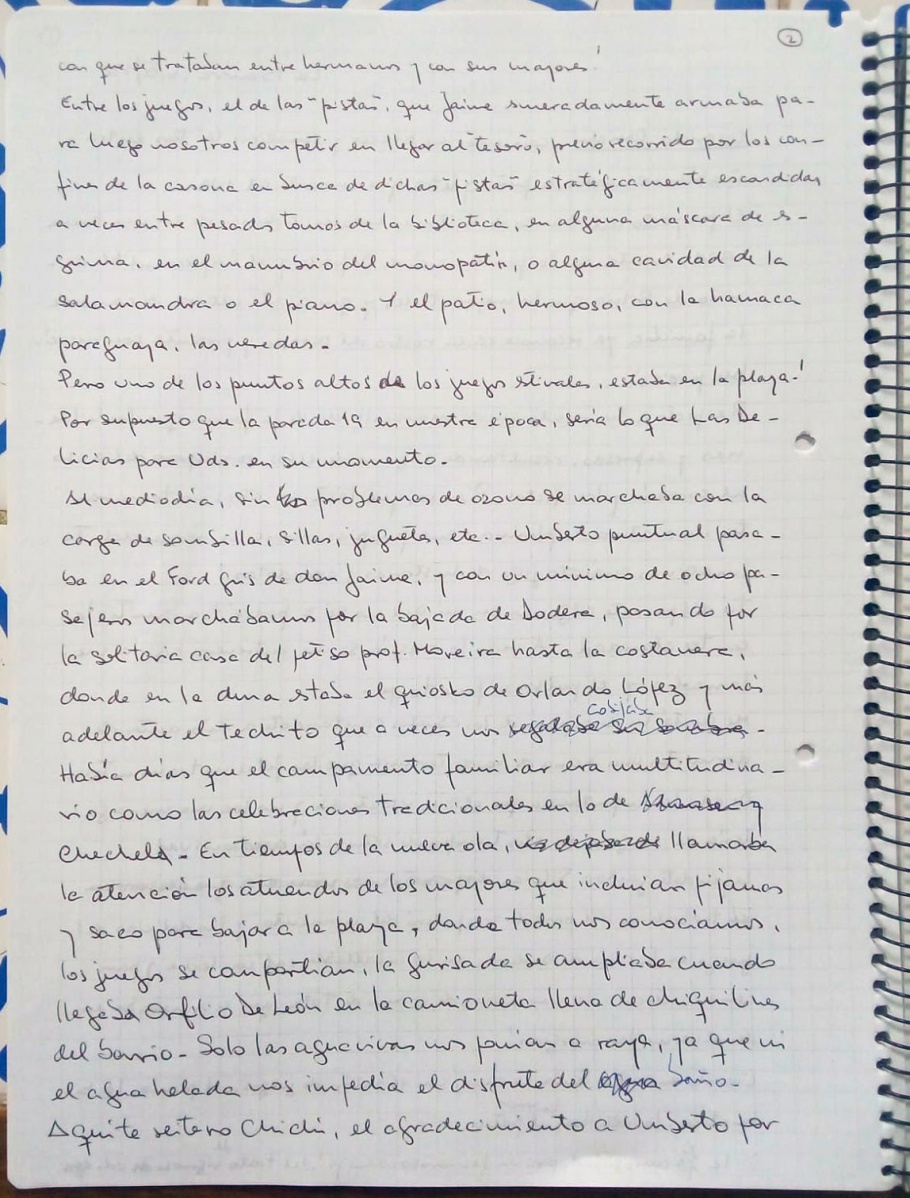 2
con que se trataban entre hermanos y con sus mayores!
Entre los juegos, el de las "pistas", que Jaime esmeradamente armaba pa-
ra luego nosotros competir en llegar al tesoro, previo recorrido por los con-
fines de la casona en busca de dichas "pistas" estratégicamente escondidas
a veces entre pesados tomos de la biblioteca, en alguna máscara de es-
grima, en el manubrio del monopatín, o alguna cavidad de la
salamandra o el piano. Y el patio, hermoso, con la hamaca
paraguaya, las veredas.
Pero uno de los puntos altos de los juegos estivales, estaba en la playa!
Por supuesto que la parada 19 en nuestra época, sería lo que Las De-
licias para Uds. en su momento.
Al mediodía, sin problemas de ozono se marchaba con la
carga de sombrilla, sillas, juguetes, etc.. Umberto puntual pasa-
ba en el Ford gris de don Jaime, y con un mínimo de ocho pa-
sajeros marchábamos por la bajada de Dodera, pasando por
la solitaria casa del petiso prof. Moreira hasta la costanera,
donde en la duna estaba el quiosko de Orlando López y más
cobijaba
adelante el techito que a veces nos regalaba su sombra.
Había días que el campamento familiar era multitudina-
rio como las celebraciones tradicionales en lo de
Chechela. En tiempos de la nueva ola, llamaba
la atención los atuendos de los mayores que incluían pijamas
y saco para bajar a la playa, donde todos nos conocíamos,
los juegos se compartían, la gurisada se ampliaba cuando
llegaba Orfilio De León en la camioneta llena de chiquilines
del barrio. Solo las aguavivas nos ponían a raya, ya que ni
el agua helada nos impedía el disfrute del agua baño.
Aquite reitero Chichi, el agradecimiento a Umberto por